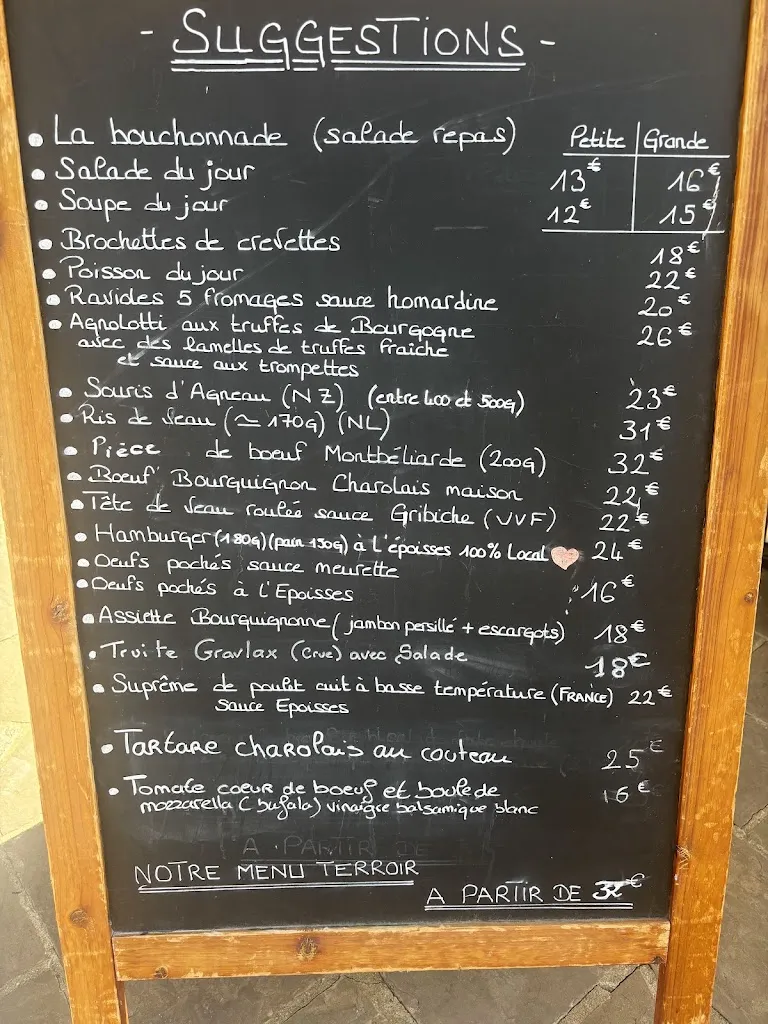 - SUGGESTIONS -
• La bouchonnade (salade repas) Petite | Grande
• Salade du jour 13€ 16€
• Soupe du jour 12€ 15€
• Brochettes de crevettes 18€
• Poisson du jour 22€
• Ravioles 5 fromages sauce homardine 20€
• Agnolotti aux truffes de Bourgogne 26€
avec des lamelles de truffes fraîche
et sauce aux trompettes
• Souris d'Agneau (NZ) (entre 400 et 500G) 23€
• Ris de Veau (≃170G) (NL) 31€
• Pièce de boeuf Montbéliarde (200G) 32€
• Boeuf Bourguignon Charolais maison 22€
• Tête de Veau roulée sauce Gribiche (VVF) 22€
• Hamburger (180G) (pain 130G) à l'époisses 100% Local 24€
• Oeufs pochés sauce meurette
• Oeufs pochés à l'Epoisses 16€
• Assiette Bourguignonne (jambon persillé + escargots) 18€
• Truite Gravlax (Crue) avec Salade 18€
• Suprême de poulet cuit à basse température (FRANCE) 22€
sauce Epoisses
• Tartare charolais au couteau 25€
• Tomate coeur de boeuf et boule de 16€
mozzarella (bufala) vinaigre balsamique blanc
A PARTIR DE
NOTRE MENU TERROIR
A PARTIR DE €